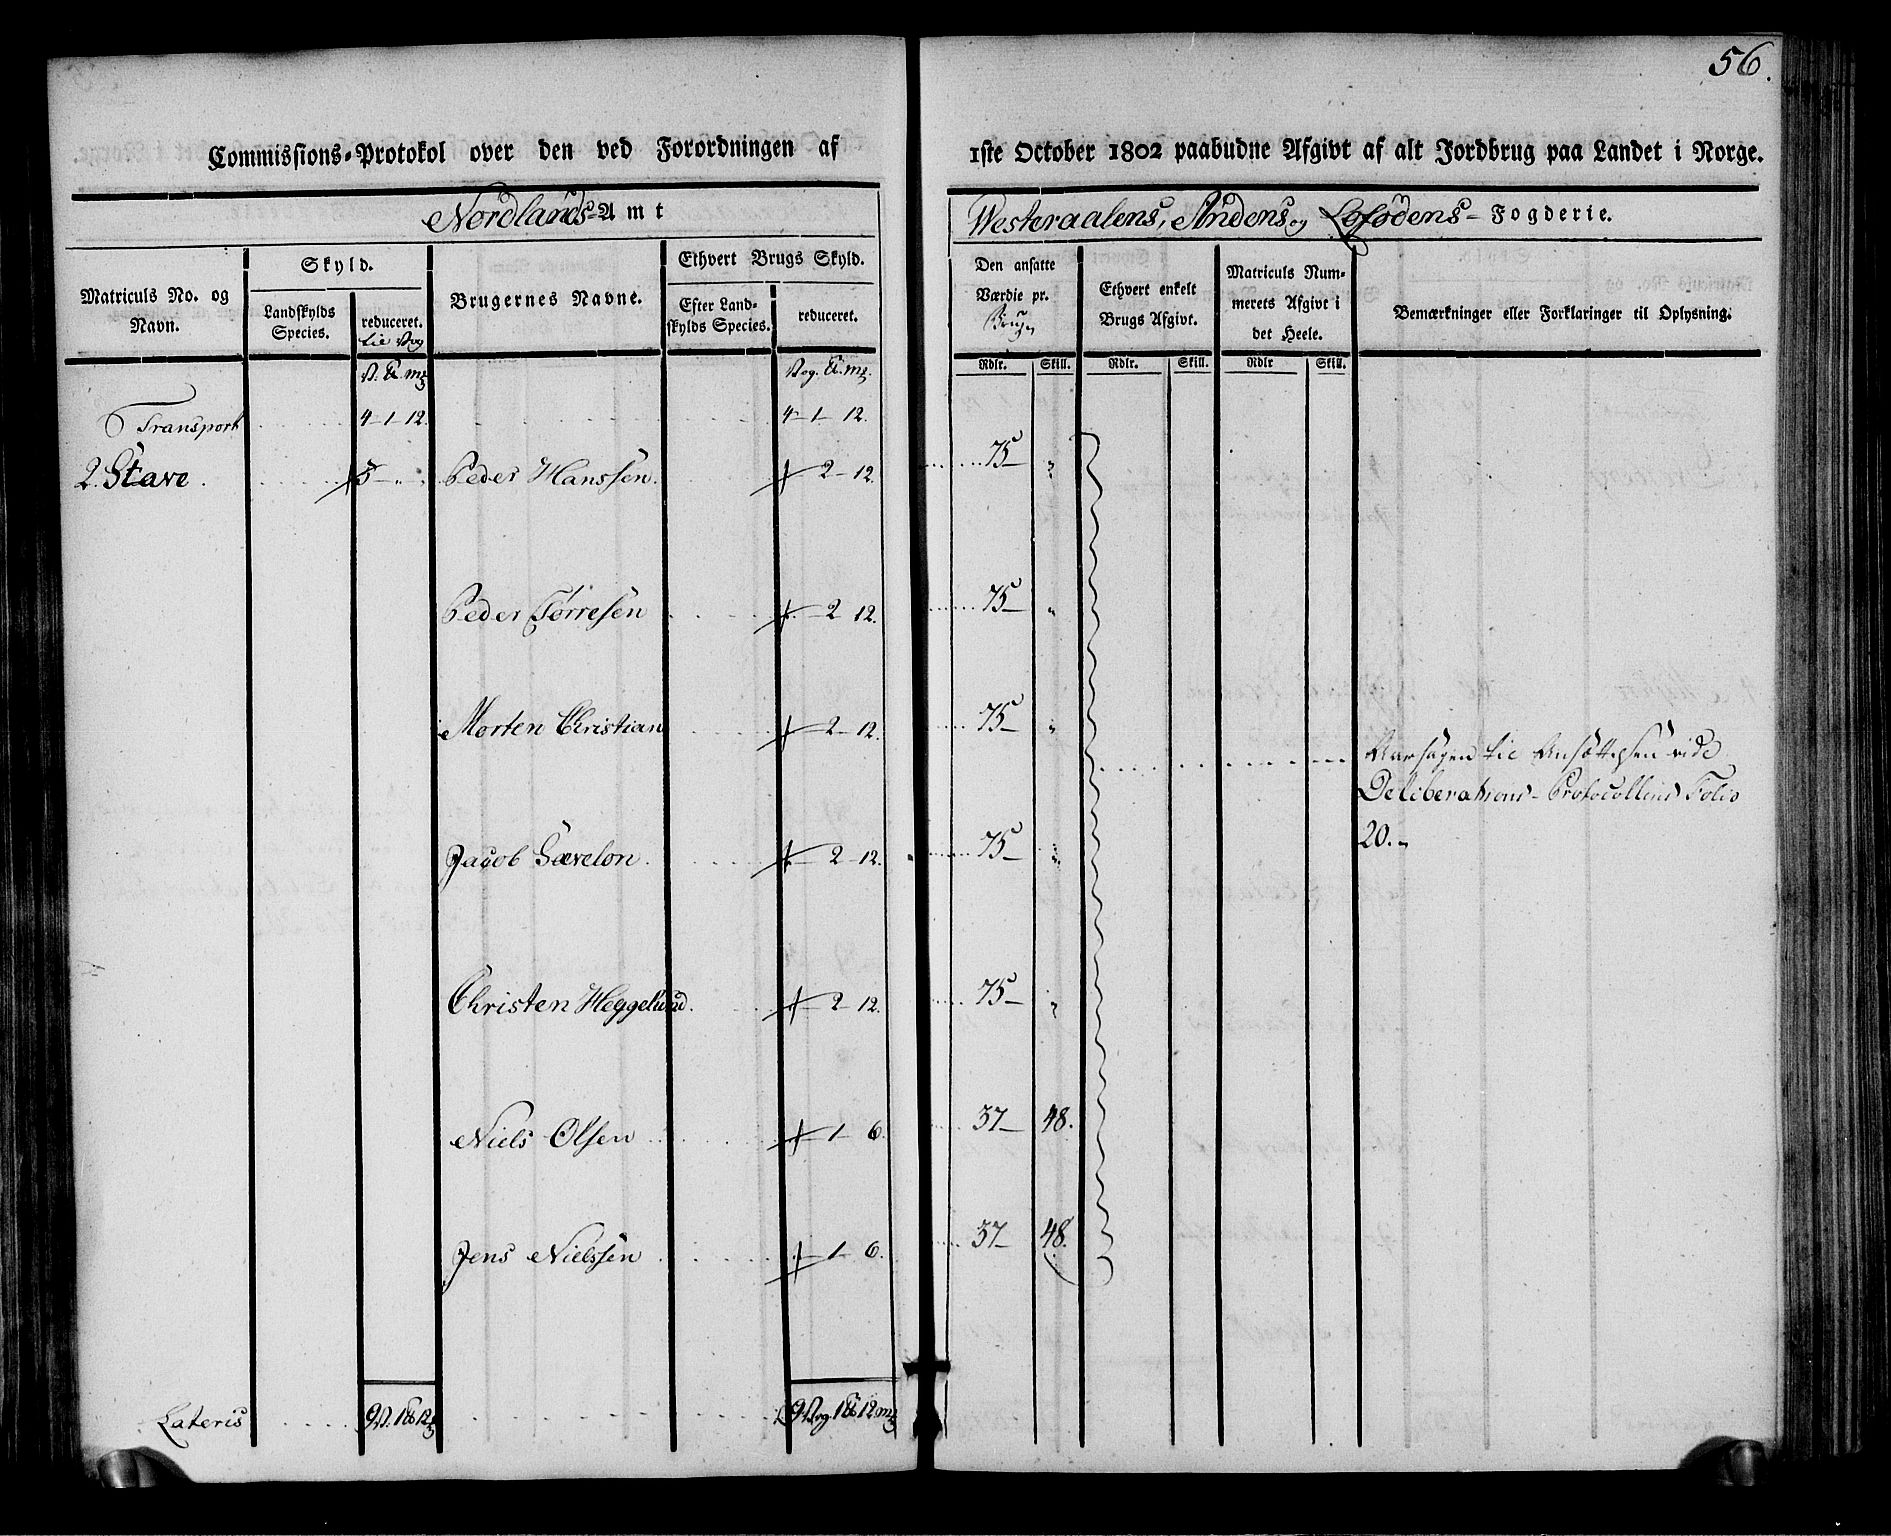 56.
Commissions-Protokol over den ved Forordningen af 1ste October 1802 paabudne Afgivt af alt Jordbrug paa Landet i Norge.
Nordlands-Amt
Westeraalens, Andens og Lofodens-Fogderie.
Matriculs No. og Navn.
Skyld.
Landskylds Species.
reduceret. til Vog
Brugernes Navne.
Ethvert Brugs Skyld.
Efter Landskylds Species.
reduceret.
Den ansatte Værdie pr. Brug
Ethvert enkelt Brugs Afgivt.
Matriculs Nummerets Afgivt i det Heele.
Bemærkninger eller Forklaringer til Oplysning.
Rdlr. Skill. Rdlr. Skill. Rdlr Skill.
V. ℔. mk Vog. ℔. mk.
Transport 4-1-12. 4-1-12.
2. Stave. 5-"-" Peder Hanssen. 2-12. 75- "
Peder Torresen 2 12. 75- "
Morten Christian 2-12. 75- "
Aarsagen til Ansættelsen vide
Deliberations-Protocollens Folio
20.
Jacob Sævelon. 2-12. 75- "
Christen Heggelund. 2-12. 75- "
Niels Olsen 1-6. 37- 48.
Jens Nielssen 1-6. 37- 48.
Lateris 9V. 1℔ 12 9Vog. 1℔ 12mk